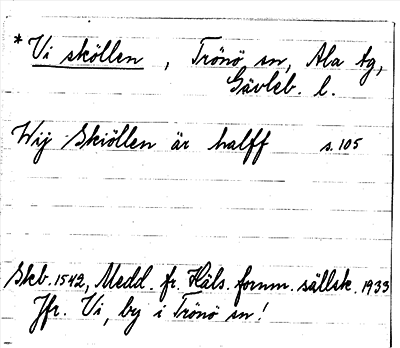 * Vi sköllen, Trönö sn, Ala tg,
Gävleb. l.
Wij Skiöllen är halff s. 105
Skb. 1542, Medd. fr. Häls. fornm. sällsk. 1933
Jfr. Vi, by i Trönö sn!